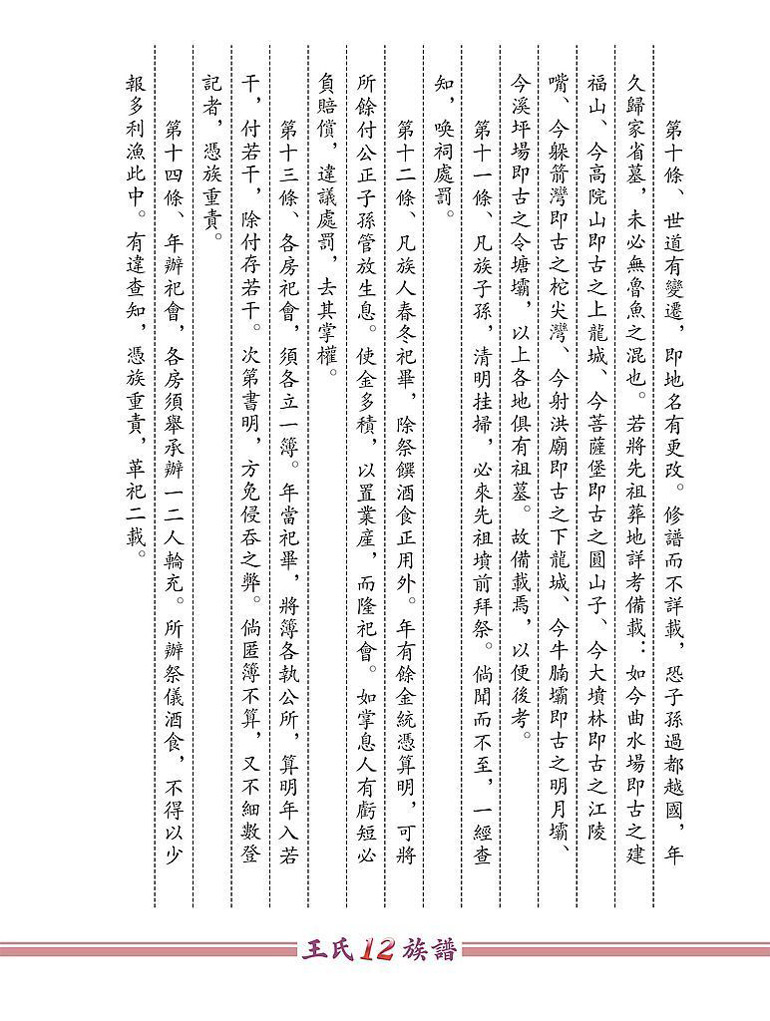 第十條、世道有變遷，即地名有更改。修譜而不詳載，恐子孫過都越國，年
久歸家省墓，未必無魯魚之混也。若將先祖葬地詳考備載：如今曲水場即古之建
福山、今高院山即古之上龍城、今菩薩堡即古之圓山子、今大墳林即古之江陵
嘴、今躲箭灣即古之柁尖灣、今射洪廟即古之下龍城、今牛腩壩即古之明月壩、
今溪坪場即古之令塘壩，以上各地俱有祖墓。故備載焉，以便後考。
第十一條、凡族子孫，清明挂掃，必來先祖墳前拜祭。倘聞而不至，一經查
知，喚祠處罰。
第十二條、凡族人春冬祀畢，除祭饌酒食正用外。年有餘金統憑算明，可將
所餘付公正子孫管放生息。使金多積，以置業産，而隆祀會。如掌息人有虧短必
負賠償，違議處罰，去其掌權。
第十三條、各房祀會，須各立一簿。年當祀畢，將簿各執公所，算明年入若
干，付若干，除付存若干。次第書明，方免侵吞之弊。倘匿簿不算，又不細數登
記者，憑族重責。
第十四條、年辦祀會，各房須舉承辦一二人輪充。所辦祭儀酒食，不得以少
報多利漁此中。有違查知，憑族重責，革祀二載。
王氏12族譜